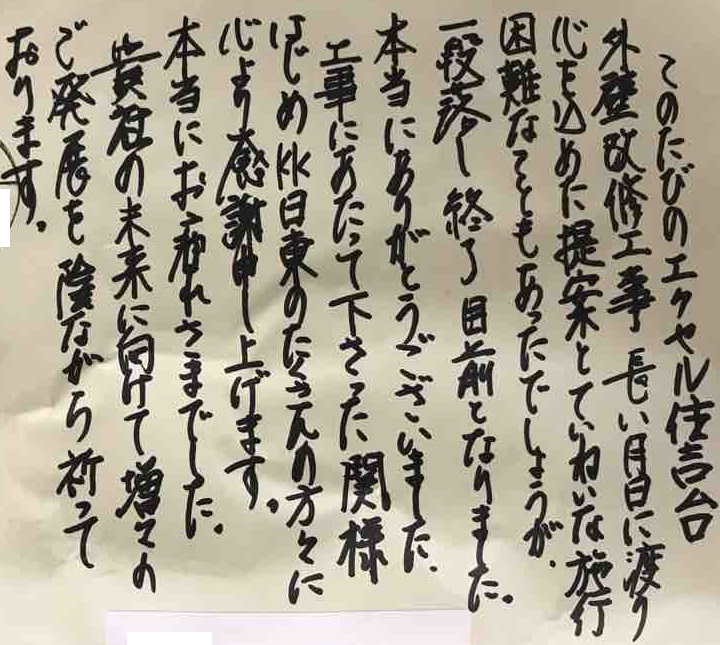 このたびのエクセル住吉台
外壁改修工事 長い月日に渡り
心を込めた提案とていねいな施行
困難なこともあったでしょうが、
一段落し 終了 目前となりました。
本当にありがとうございました。
工事にあたって下さった 関様
はじめ KK日東のたくさんの方々に
心より感謝申し上げます。
本当にお疲れさまでした。
貴社の未来に向けて 増々の
ご発展を 陰ながら 祈って
おります。